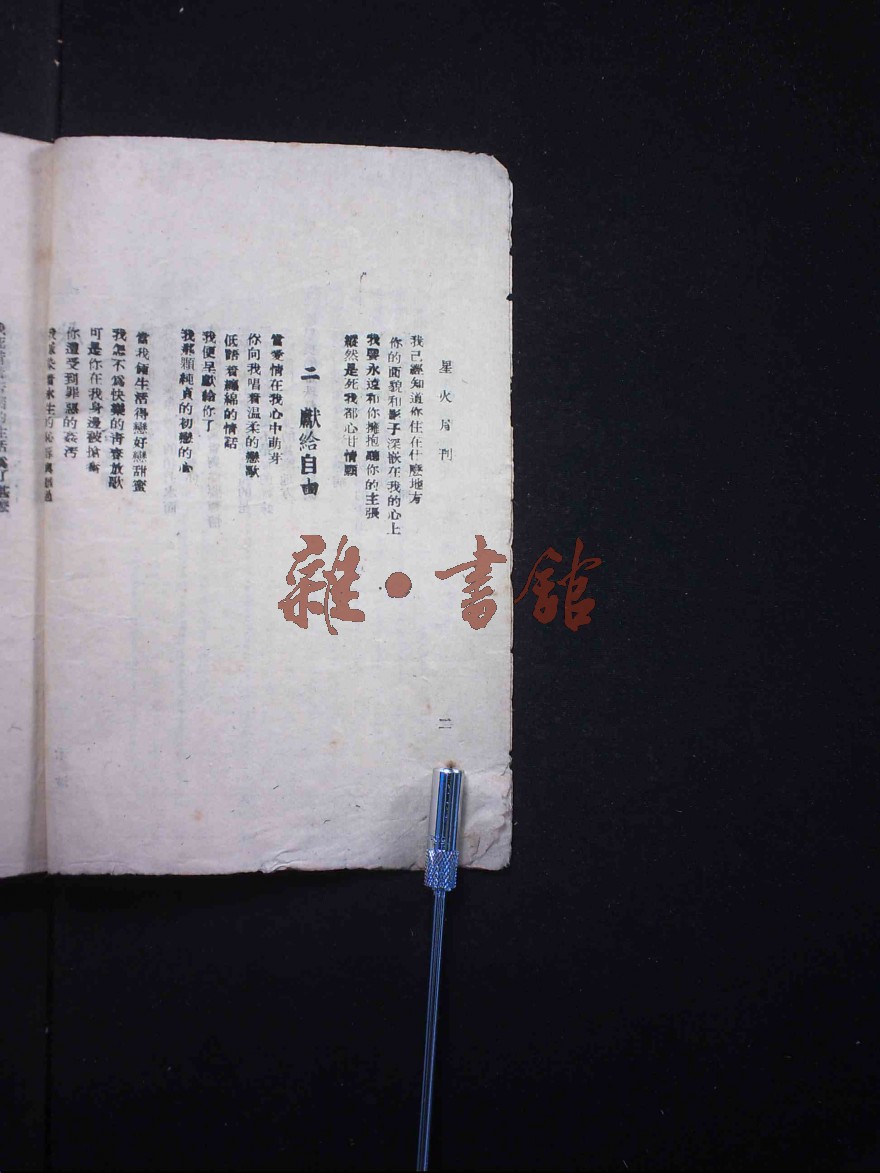 星火月刊
我已經知道你住在什麼地方
你的面貌和影子深嵌在我的心上
我要永遠和你擁抱聽你的主張
縱然是死我都心甘情願
二 獻給自由
當愛情在我心中萌芽
你向我唱着温柔的戀歌
低語着纏綿的情話
我便呈獻給你了
我那顆純貞的初戀的心
當我傾生活得戀好戀甜蜜
我怎不為快樂的青春放歌
可是你在我身邊被搶奪
你遭受到罪惡的姦汚
二
雜•書館